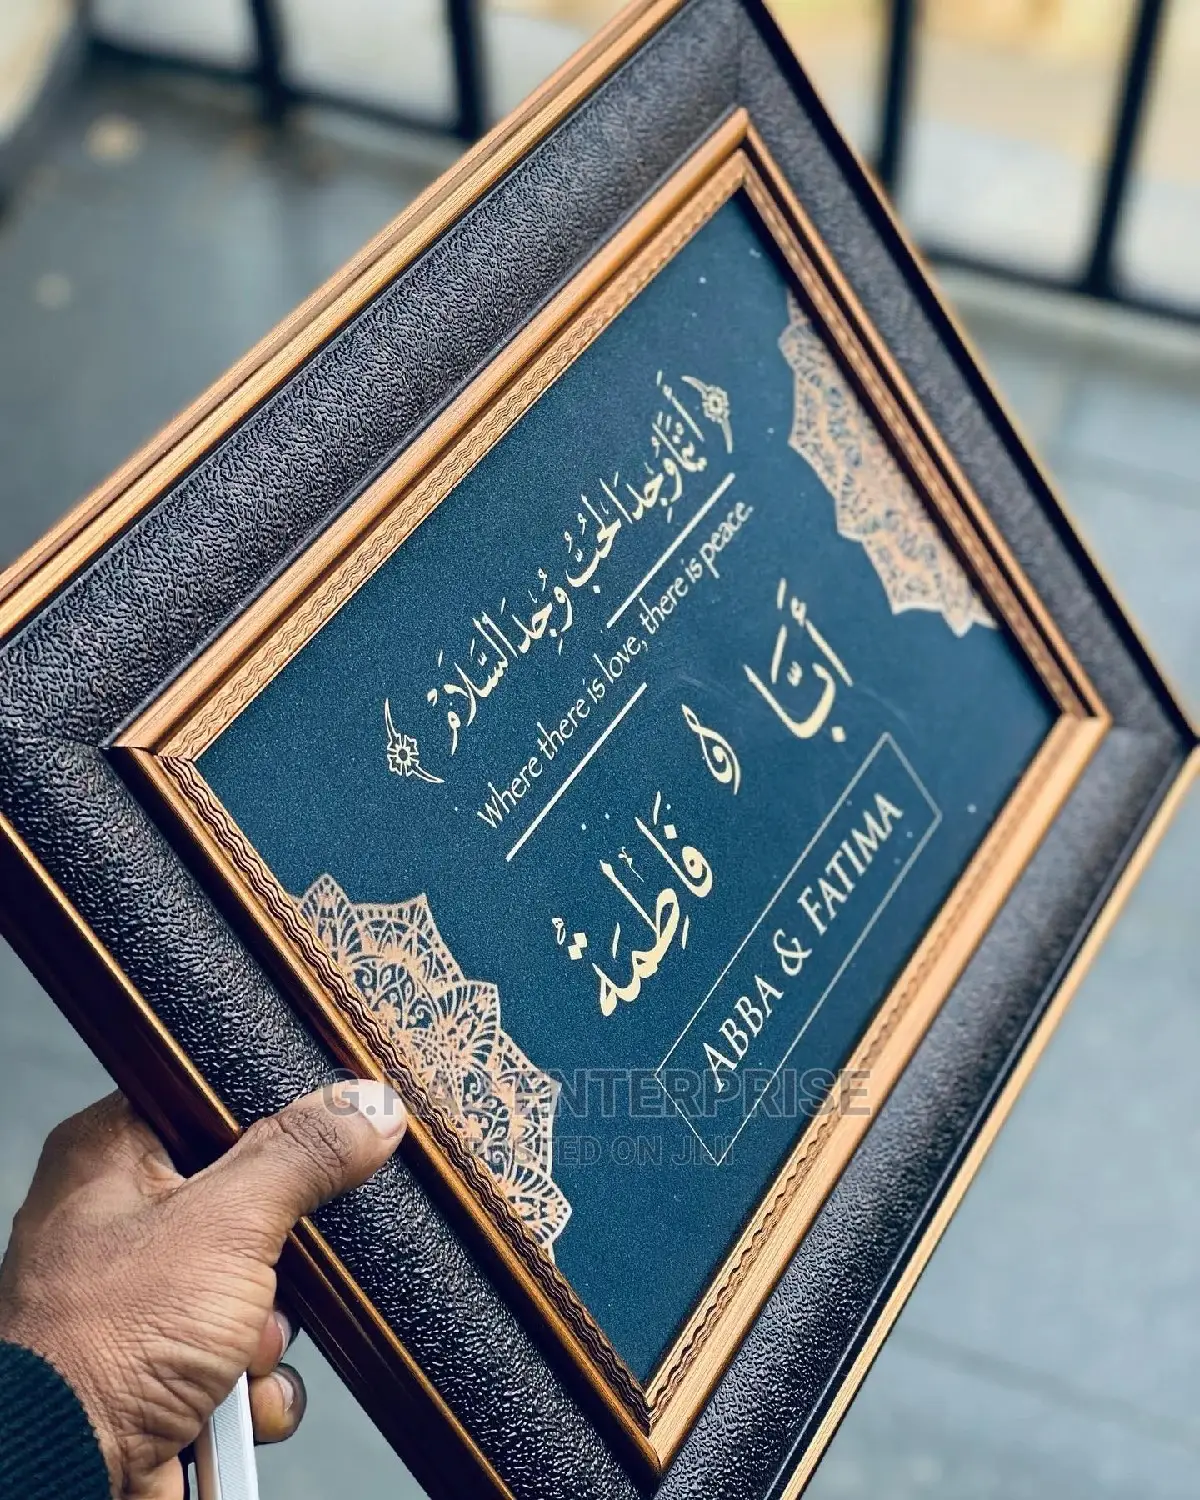 أَيْنَمَا وُجِدَ الحُبُّ وُجِدَ السَّلَامُ
Where there is love, there is peace.
أَبَّا
و
فَاطِمَةُ
ABBA & FATIMA
ENTERPRISE
POSTED ON JIJI